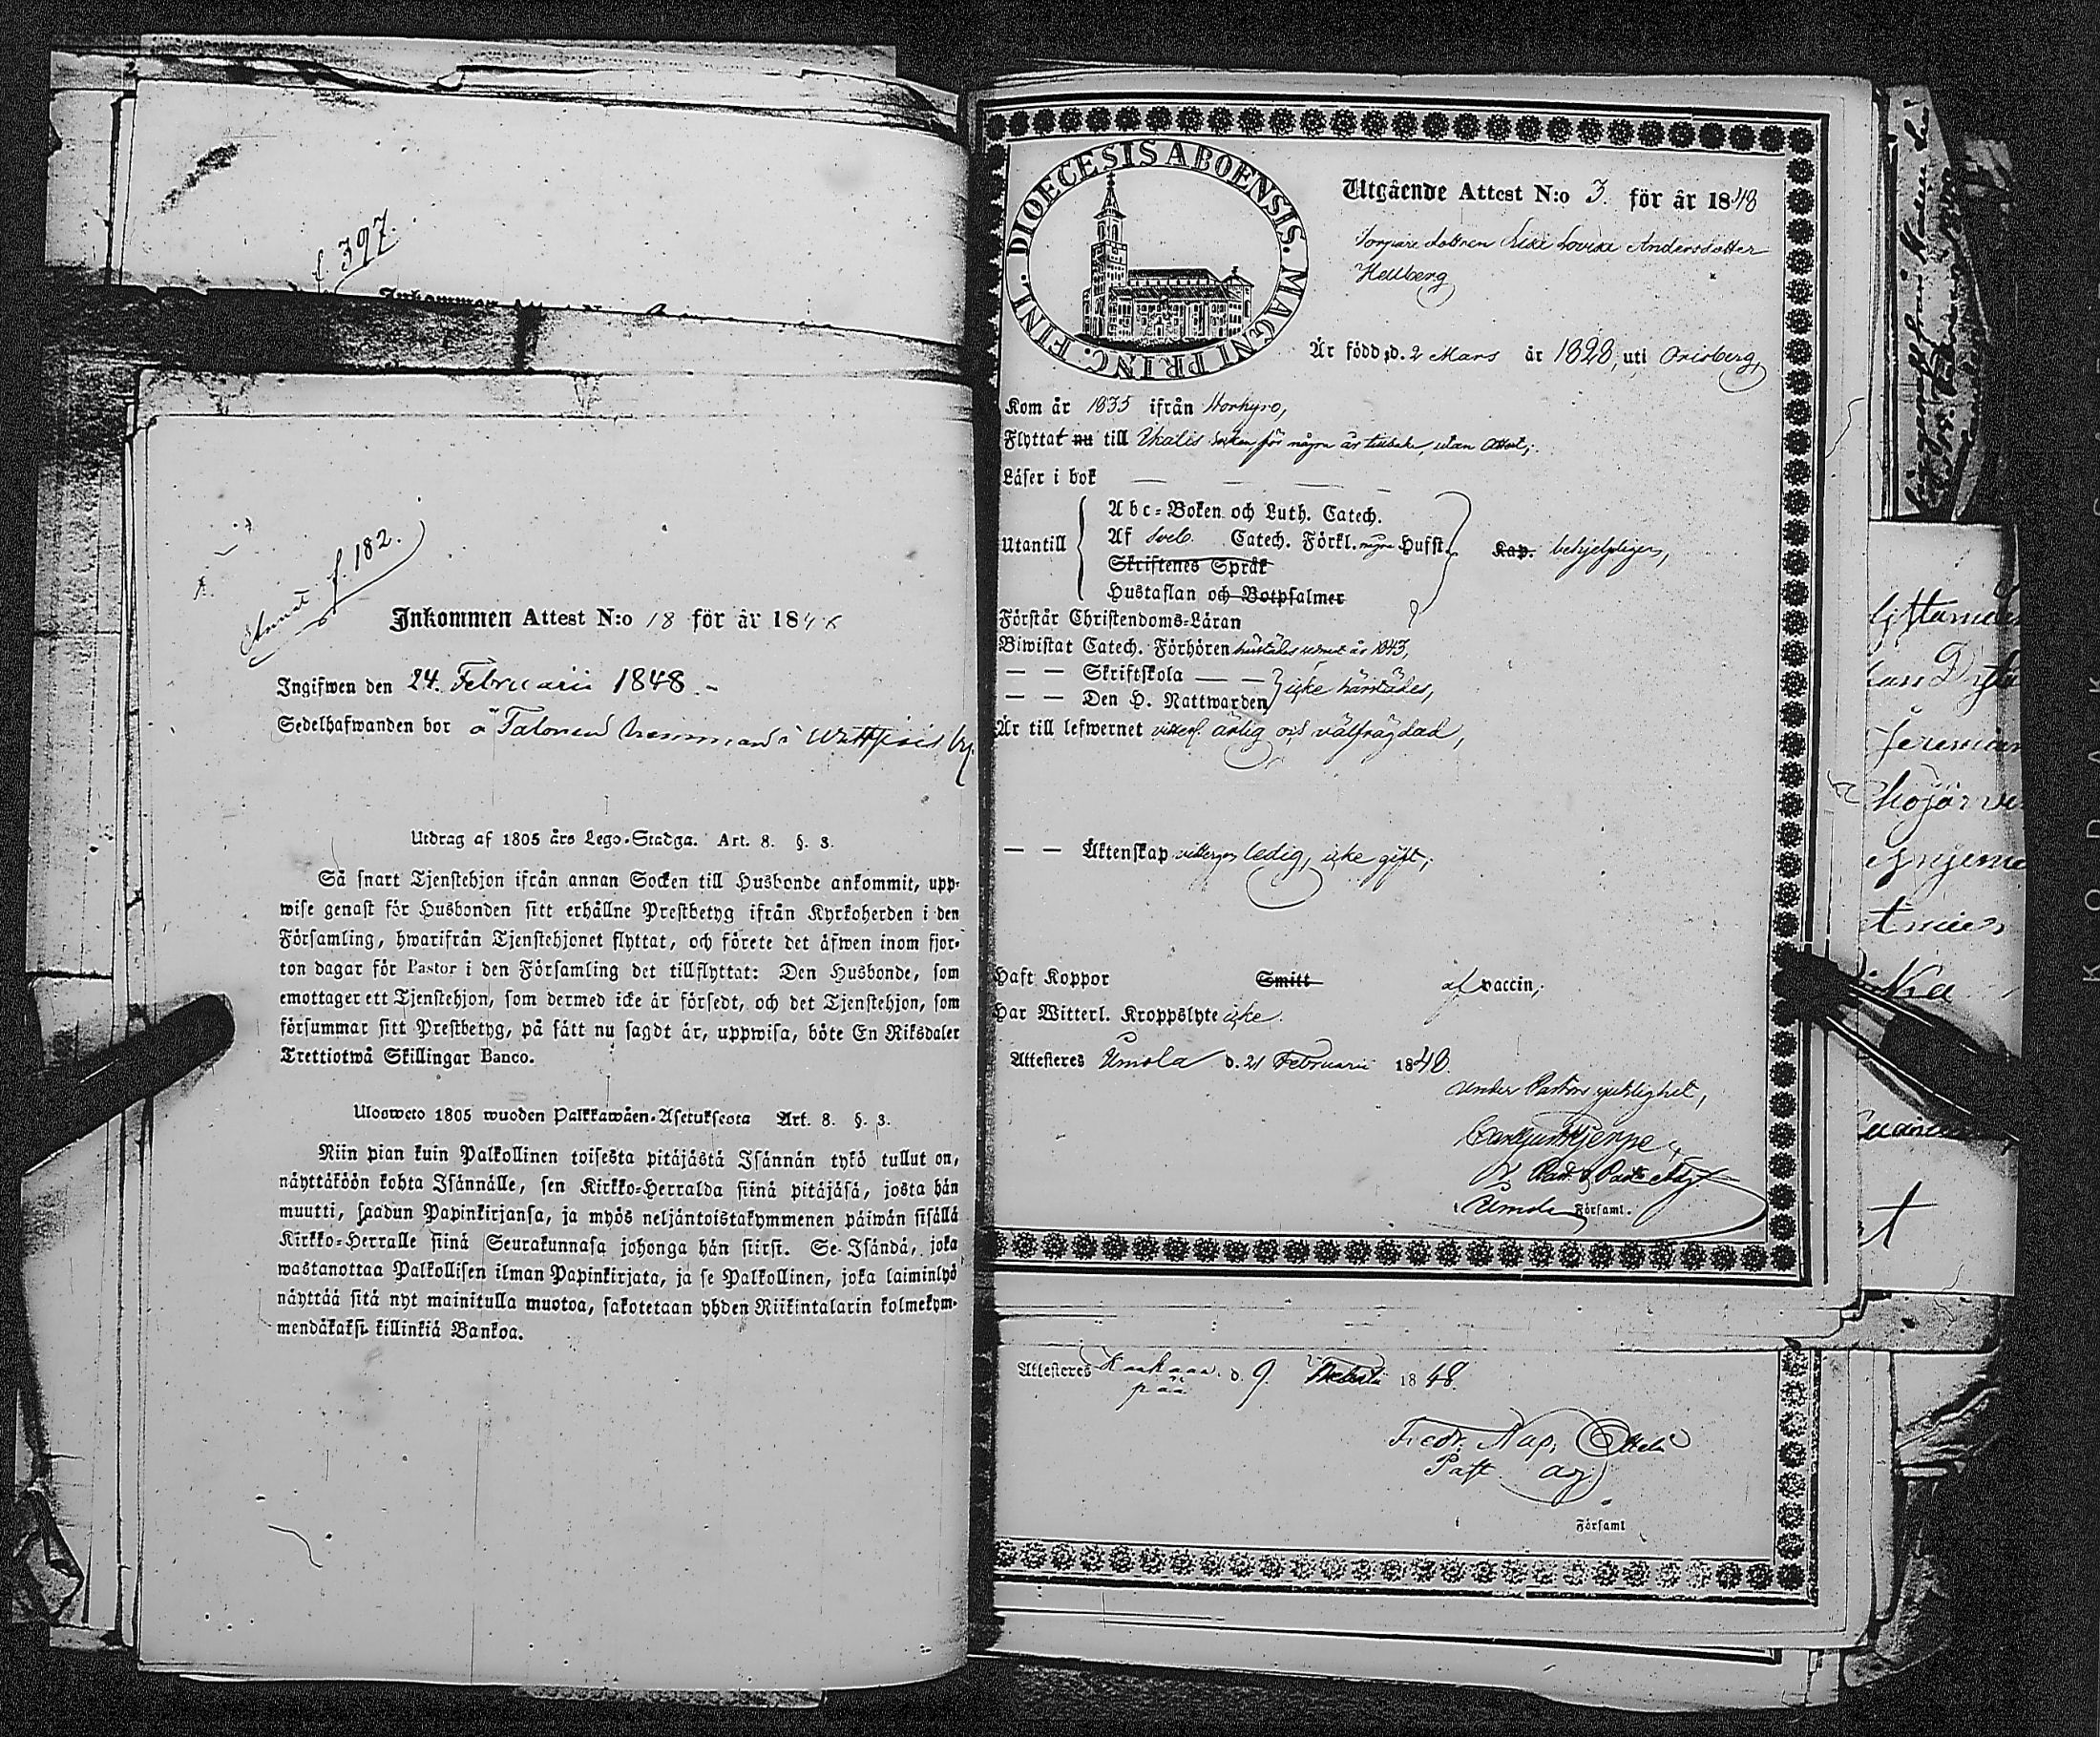 f. 397.
Annot f. 182.
Inkommen Attest N:o 18 för år 184
Ingifwen den 24. Februarii 1848. -
Sedelhafwanden bor å Talonen hemman i
Utdrag af 1805 års Lego-Stadga. Art. 8. §. 3.
Så snart Tjenstehjon ifrån annan Socken till Husbonde ankommit, upp-
wise genast för Husbonden sitt erhållne Prestbetyg ifrån Kyrkoherden i den
Församling, hwarifrån Tjenstehjonet flyttat, och förete det äfwen inom fjor-
ton dagar för Pastor i den Församling det tillflyttat: Den Husbonde, som
emottager ett Tjenstehjon, som dermed icke är försedt, och det Tjenstehjon, som
försummar sitt Prestbetyg, på sätt nu sagdt är, uppwisa, böte En Riksdaler
Trettiotwå Skillingar Banco.
Ulosweto 1805 wuoden Palkkawäen-Asetuksesta Art. 8. §. 3.
Niin pian kuin Palkollinen toisesta pitäjästä Isännän tykö tullut on,
näyttäköön kohta Isännälle, sen Kirkko-Herralda siinä pitäjäsä, josta hän
muutti, saadun Papinkirjansa, ja myös neljäntoistakymmenen päiwän sisällä
Kirkko-Herralle siinä Seurakunnasa johonga hän siirsi. Se Isändä, joka
wastanottaa Palkollisen ilman Papinkirjata, ja se Palkollinen, joka laiminlyö
näyttää sitä nyt mainitulla muotoa, sakotetaan yhden Riikintalarin kolmekym-
mendäkaksi killinkiä Bankoa.
DIOECESIS ABOENSIS. MAGNI PRINC. FINL.
Utgående Attest N:o 3. för år 1848
Torpare dottren Lisa Lovisa Andersdotter
Hellberg
Är född d. 2 Mars år 1828, uti Orisberg,
Kom år 1835 ifrån Storkyro,
Flyttat nu till Ikalis Socken för några år tillbaka, utan Attest;
Läser i bok — — — —
Utantill
Abc-Boken och Luth. Catech.
Af Sveb. Catech. Förkl. några Hufst. Kap. behjelpligen,
Skriftenes Språk
Hustaflan och Botpsalmer
Förstår Christendoms-Läran
Biwistat Catech. Förhören härstädes senast år 1843,
— — Skriftskola — —
— — Den H. Nattwarden icke härstädes,
Är till lefwernet vitterl. ärlig och välfrägdad,
— — Äktenskap vitterligen ledig, icke gift;
Haft Koppor Smitt af vaccin;
Har Witterl. Kroppslyte icke.
Attesteres Ilmola d. 21 Februarii 1848.
under Pastors sjuklighet,
Församl.
Attesteres Kankaan- d. 9 1848.
pää
Fredr. Nap.
Past. adj
i Församl